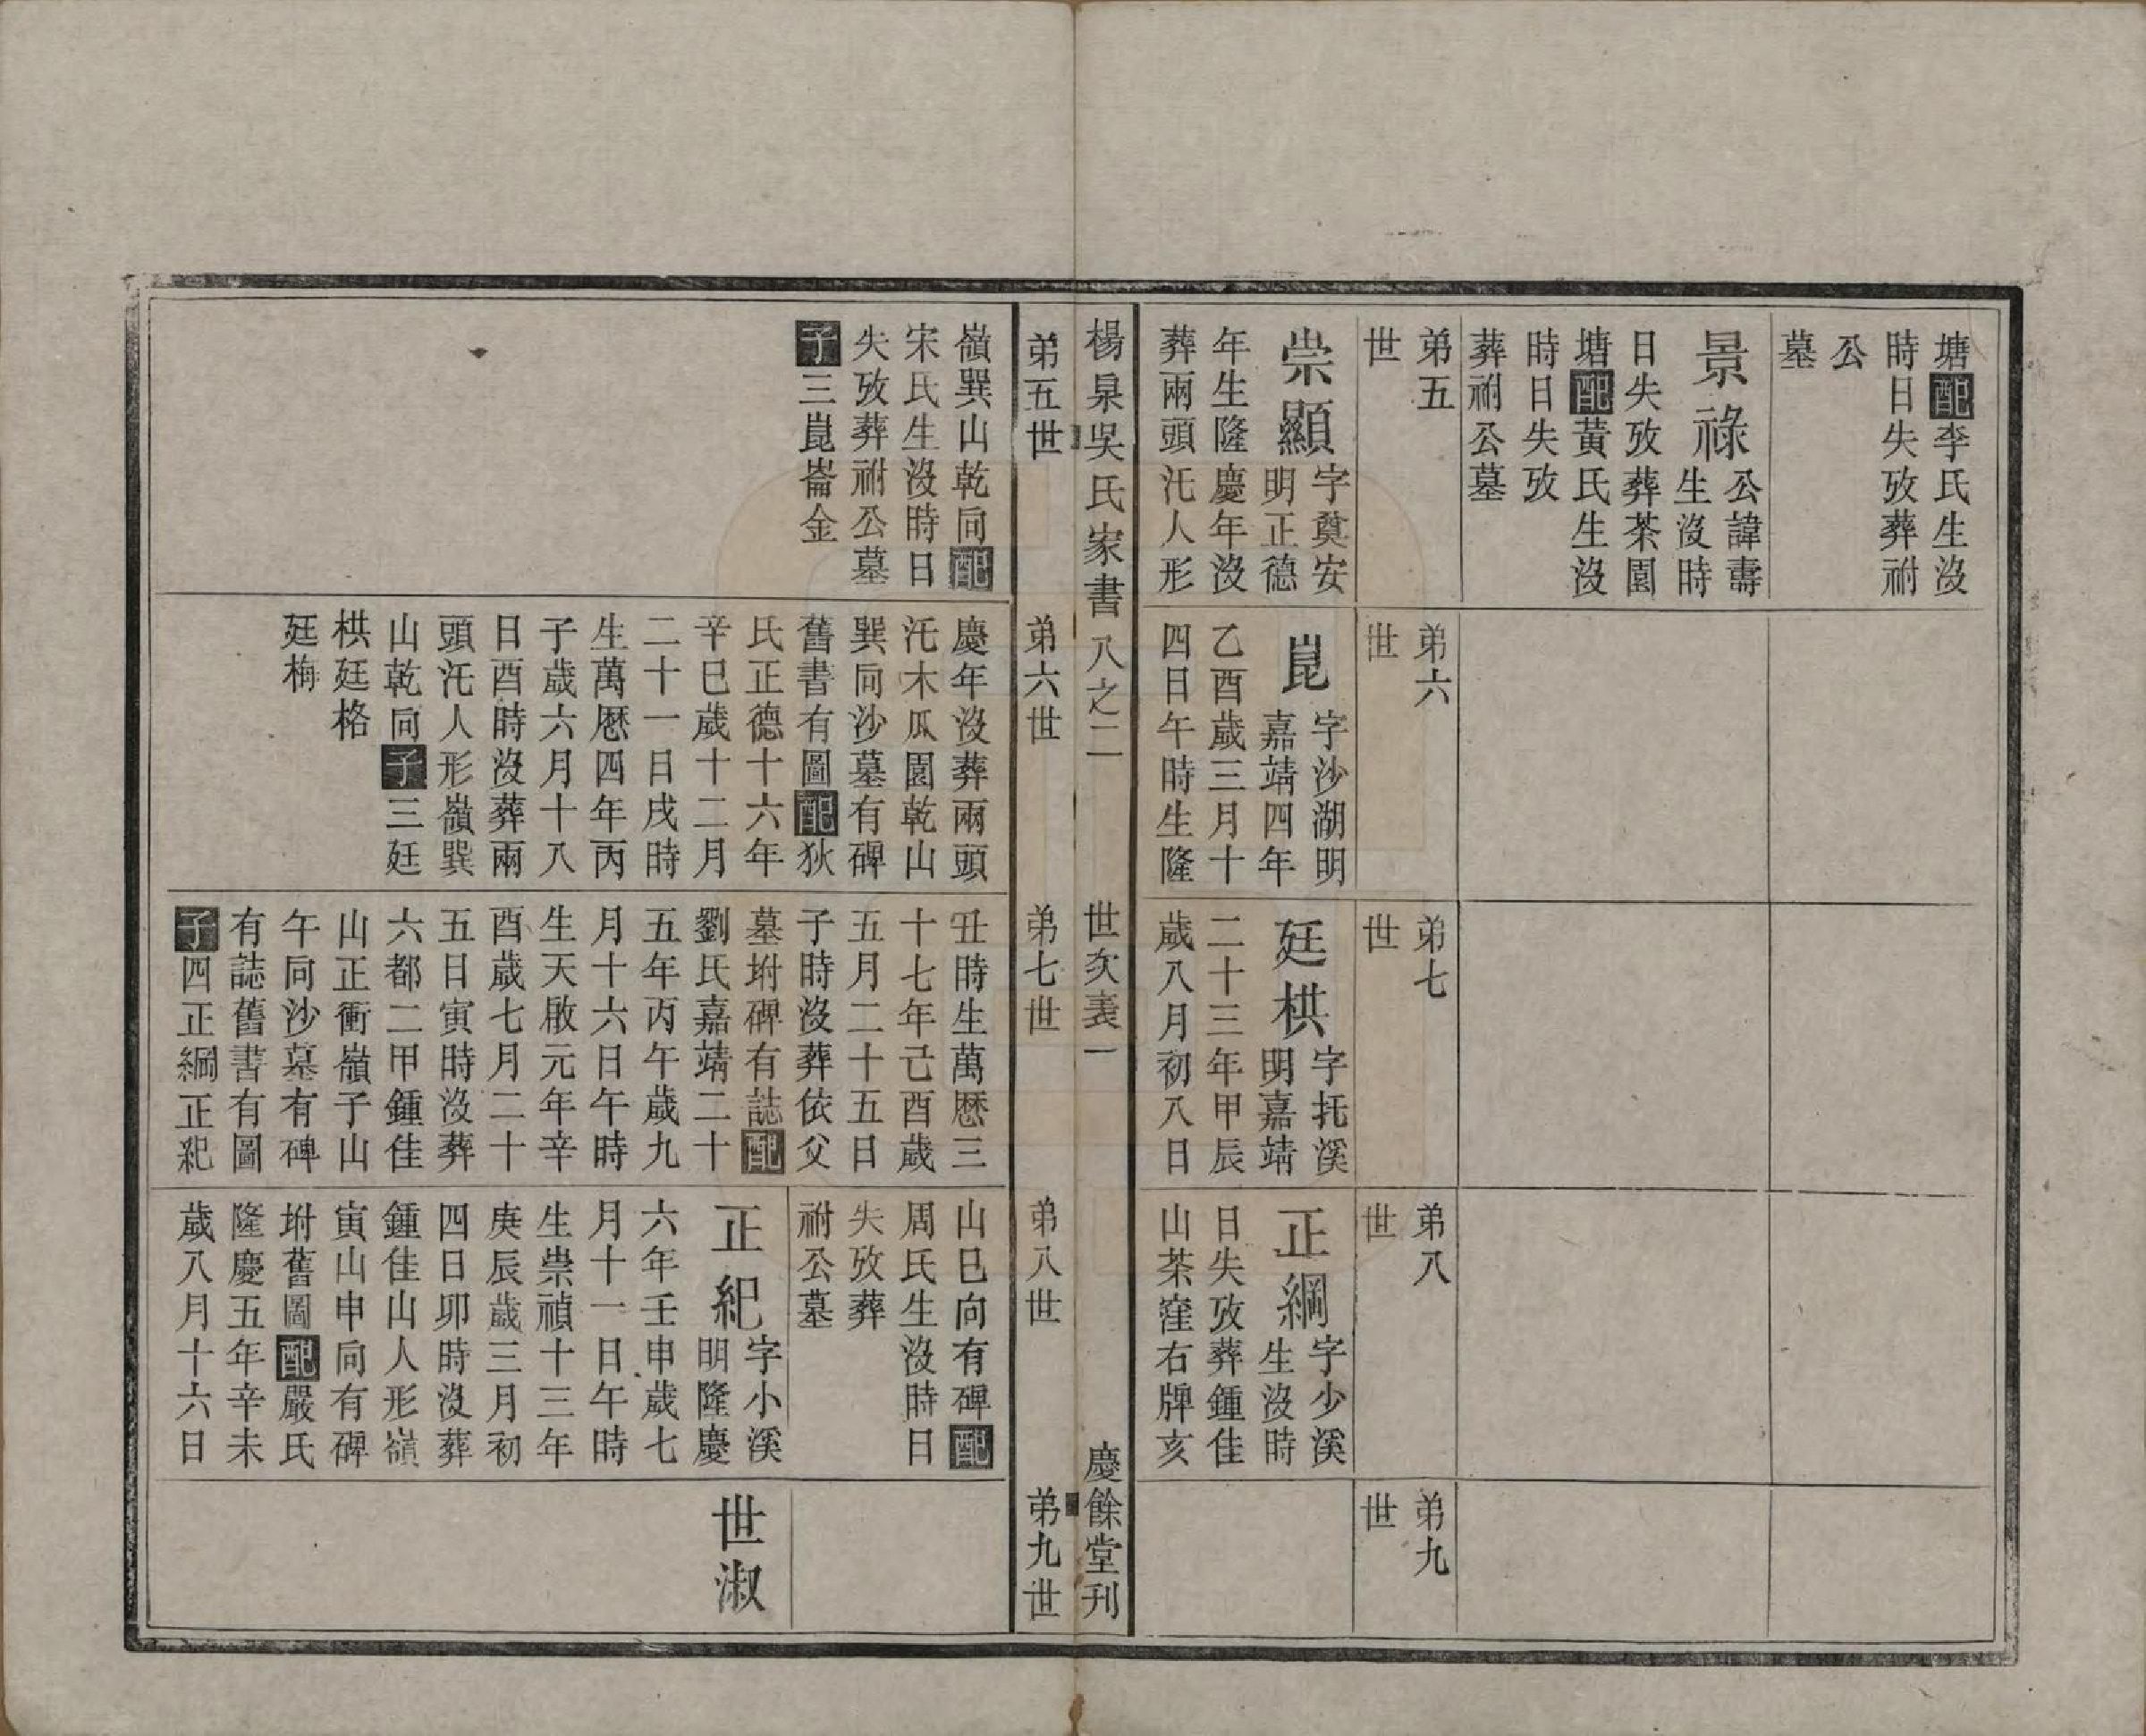 塘配李氏生沒
時日失攷葬祔
公
墓
景祿
公諱壽
生沒時
日失攷葬茶園
塘配黃氏生沒
時日失攷
葬祔公墓
弟五
世
崇顯
字奠安
明正德
年生隆慶年沒
葬兩頭汑人形
弟六
世
崑
字沙湖明
嘉靖四年
乙酉歲三月十
四日午時生隆
弟七
世
廷栱
字托溪
明嘉靖
二十三年甲辰
歲八月初八日
弟八
世
正綱
字少溪
生沒時
日失攷葬鍾佳
山茶窪右牌亥
弟九
世
楊泉吳氏家書 八之二 世次表一 慶餘堂刊
弟五世 弟六世 弟七世 弟八世 弟九世
嶺巽山乾向配
宋氏生沒時日
失攷葬祔公墓
子三崑崙金
慶年沒葬兩頭
汑木瓜園乾山
巽向沙墓有碑
舊書有圖配狄
氏正德十六年
辛巳歲十二月
二十一日戌時
生萬厯四年丙
子歲六月十八
日酉時沒葬兩
頭汑人形嶺巽
山乾向子三廷
栱廷格
廷梅
丑時生萬厯三
十七年己酉歲
五月二十五日
子時沒葬依父
墓坿碑有誌配
劉氏嘉靖二十
五年丙午歲九
月十六日午時
生天啟元年辛
酉歲七月二十
五日寅時沒葬
六都二甲鍾佳
山正衝嶺子山
午向沙墓有碑
有誌舊書有圖
子四正綱正紀
山巳向有碑配
周氏生沒時日
失攷葬
祔公墓
正紀
字小溪
明隆慶
六年壬申歲七
月十一日午時
生崇禎十三年
庚辰歲三月初
四日卯時沒葬
鍾佳山人形嶺
寅山申向有碑
坿舊圖配嚴氏
隆慶五年辛未
歲八月十六日
世淑